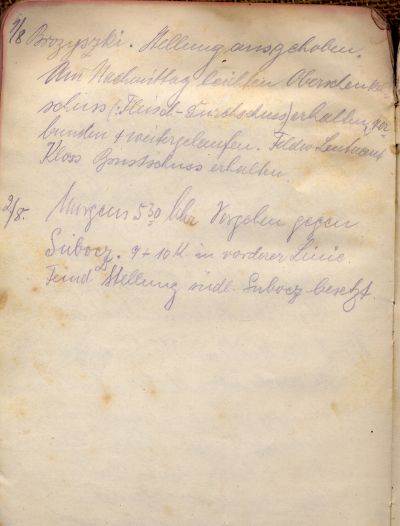 1/8 Brozyszki. Stellung ausgehoben.
Am Nachmittag leichten Oberschenkel-
schuss (: Fleisch-Durchschuss) erhalten, ver-
bunden + weitergelaufen. Feldw Leutnant
Kloss Brustschuss erhalten.
2/8. Morgens 5 30 Uhr Vorgehen gegen
Subocz. 9 + 10 K. in vorderer Linie.
Feind Stellung südl. Subocz besetzt